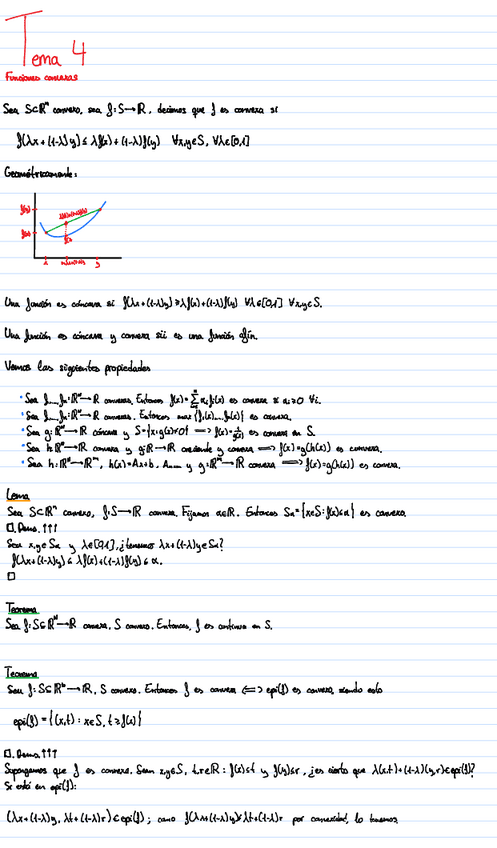 Tema 4
Funciones convexas
Sea S⊂ℝⁿ convexo, sea f:S→ℝ, decimos que f es convexa si
f(λx+(1-λ)y)≤λf(x)+(1-λ)f(y) ∀x,y∈S, ∀λ∈[0,1]
Geométricamente:
f(y)
f(x)
x
y
Una función es cóncava si f(λx+(1-λ)y)≥λf(x)+(1-λ)f(y) ∀λ∈[0,1] ∀x,y∈S.
Una función es cóncava y convexa sii es una función afín.
Veamos las siguientes propiedades
• Sea f₁,...,fₙ:ℝᵈ→ℝ convexas. Entonces f(x)=∑αᵢfᵢ(x) es convexa si αᵢ≥0 ∀i.
• Sea f₁,...,fₙ:ℝᵈ→ℝ convexas. Entonces max{f₁(x),...,fₙ(x)} es convexa.
• Sea g:ℝᵈ→ℝ cóncava y S={x:g(x)>0} ⟹ f(x)=1/g(x) es convexa en S.
• Sea h:ℝᵈ→ℝ convexa y g:ℝ→ℝ creciente y convexa ⟹ f(x)=g(h(x)) es convexa.
• Sea h:ℝᵈ→ℝᵐ, h(x)=Ax+b, y g:ℝᵐ→ℝ convexa ⟹ f(x)=g(h(x)) es convexa.
Lema
Sea S⊂ℝⁿ convexo, f:S→ℝ convexa. Fijamos α∈ℝ. Entonces Sα={x∈S:f(x)≤α} es convexo.
□. Dem. ↑↑↑
Sean x,y∈Sα y λ∈[0,1], ¿tenemos λx+(1-λ)y∈Sα?
f(λx+(1-λ)y)≤λf(x)+(1-λ)f(y)≤α.
□
Teorema
Sea f:S⊆ℝᵈ→ℝ convexa, S convexo. Entonces, f es continua en S.
Teorema
Sea f:S⊆ℝⁿ→ℝ, S convexo. Entonces f es convexa ⟺ epi(f) es convexo, siendo esto
epi(f)={(x,t): x∈S, t≥f(x)}
□. Dem. ↑↑↑
Supongamos que f es convexa. Sean x,y∈S, t,r∈ℝ: f(x)≤t y f(y)≤r, ¿es cierto que λ(x,t)+(1-λ)(y,r)∈epi(f)?
Si está en epi(f):
(λx+(1-λ)y, λt+(1-λ)r)∈epi(f); como f(λx+(1-λ)y)≤λt+(1-λ)r por convexidad, lo tenemos.